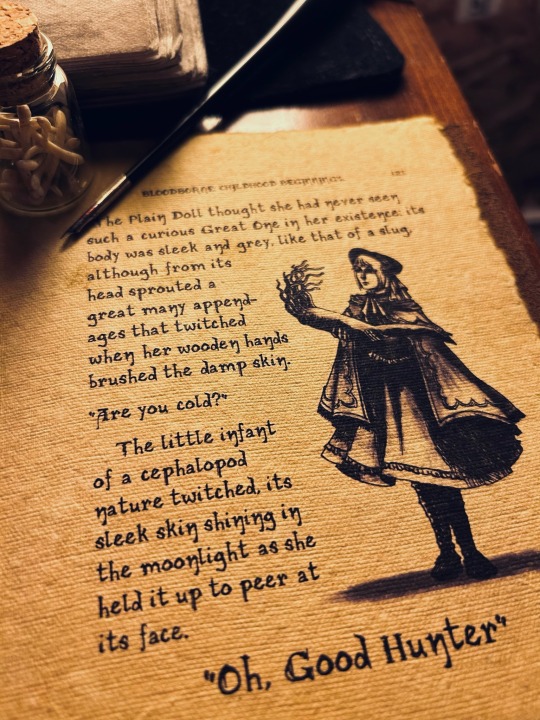 BLOODBORNE CHILDHOOD BEGINNINGS
The Plain Doll thought she had never seen
such a curious Great One in her existence: its
body was sleek and grey, like that of a slug,
although from its
head sprouted a
great many append-
ages that twitched
when her wooden hands
brushed the damp skin.
"Are you cold?"
The little infant
of a cephalopod
nature twitched, its
sleek skin shining in
the moonlight as she
held it up to peer at
its face.
"Oh, Good Hunter"